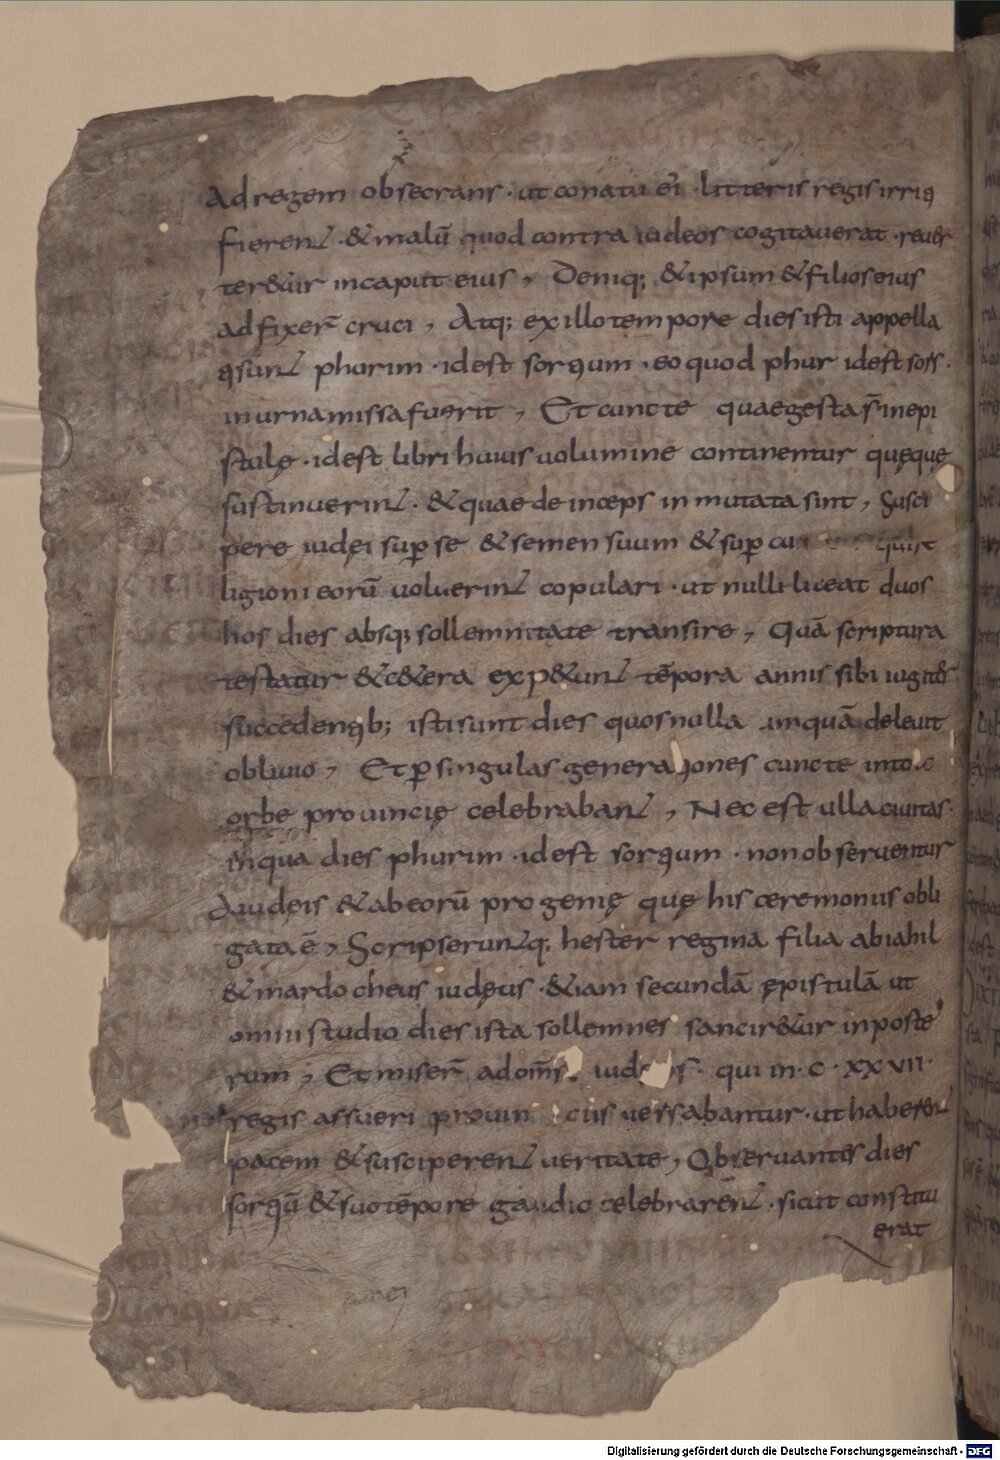 Ad regem obsecrans · ut conatū ei · litteris regis irriti
fierent · & malū quod contra iudeos cogitauerat · reuer
ter&ur in caput eius , Deniq; & ipsum & filios eius
adfixer̄ cruci , Atq; ex illo tempore dies isti appella
ti sunt phurim · id est sortium · eo quod phur id est sors ·
in urna missa fuerit , Et cuncte quae gesta s̄ in epi
stulę · id est libri huius uolumine continentur quęquę
sustinuerint · & quae deinceps inmutata sint , Susci
pere iudęi sup̄ se & semen suum & sup̄
ligioni eorū uoluerint copulari · ut nulli liceat duos
hos dies absq; sollemnitate transire , Quā scriptura
testatur & c&era exp&unt tēpora annis sibi iugiter
succedentib; isti sunt dies quos nulla unquā deleuit
obliuio , Et p̄ singulas generationes cuncte in
orbe prouincię celebrabant , Nec est ulla ciuitas ·
in qua dies phurim · id est sortium · non obseruentur
A iudęis & ab eorū progenię quę his ceremoniis obli
gata ē , Scripseruntq; hester regina filia abiahil
& mardocheus iudęus · & iam secundā ępistulā ut
omni studio dies ista sollemnes sancir&ur in poste
rum , Et miser̄ ad om̄s iudeos · qui in · c · xxvii ·
regis assueri prouinciis uersabantur · ut haberent
pacem & susciperent ueritatē , Obseruantes dies
sortiū & suo tēpore gaudio celebrarent · sicut constitu
erat
umque